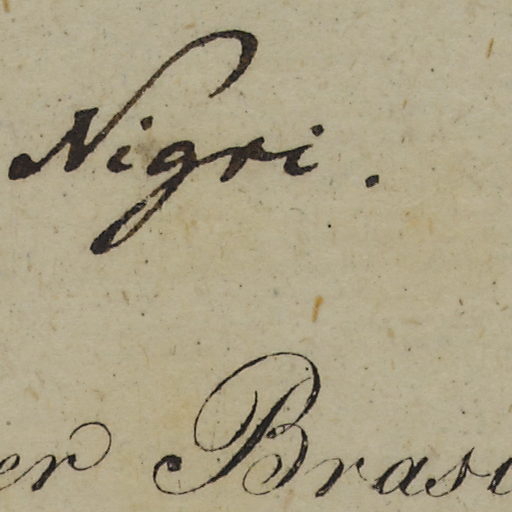 Nigri.
er Bras